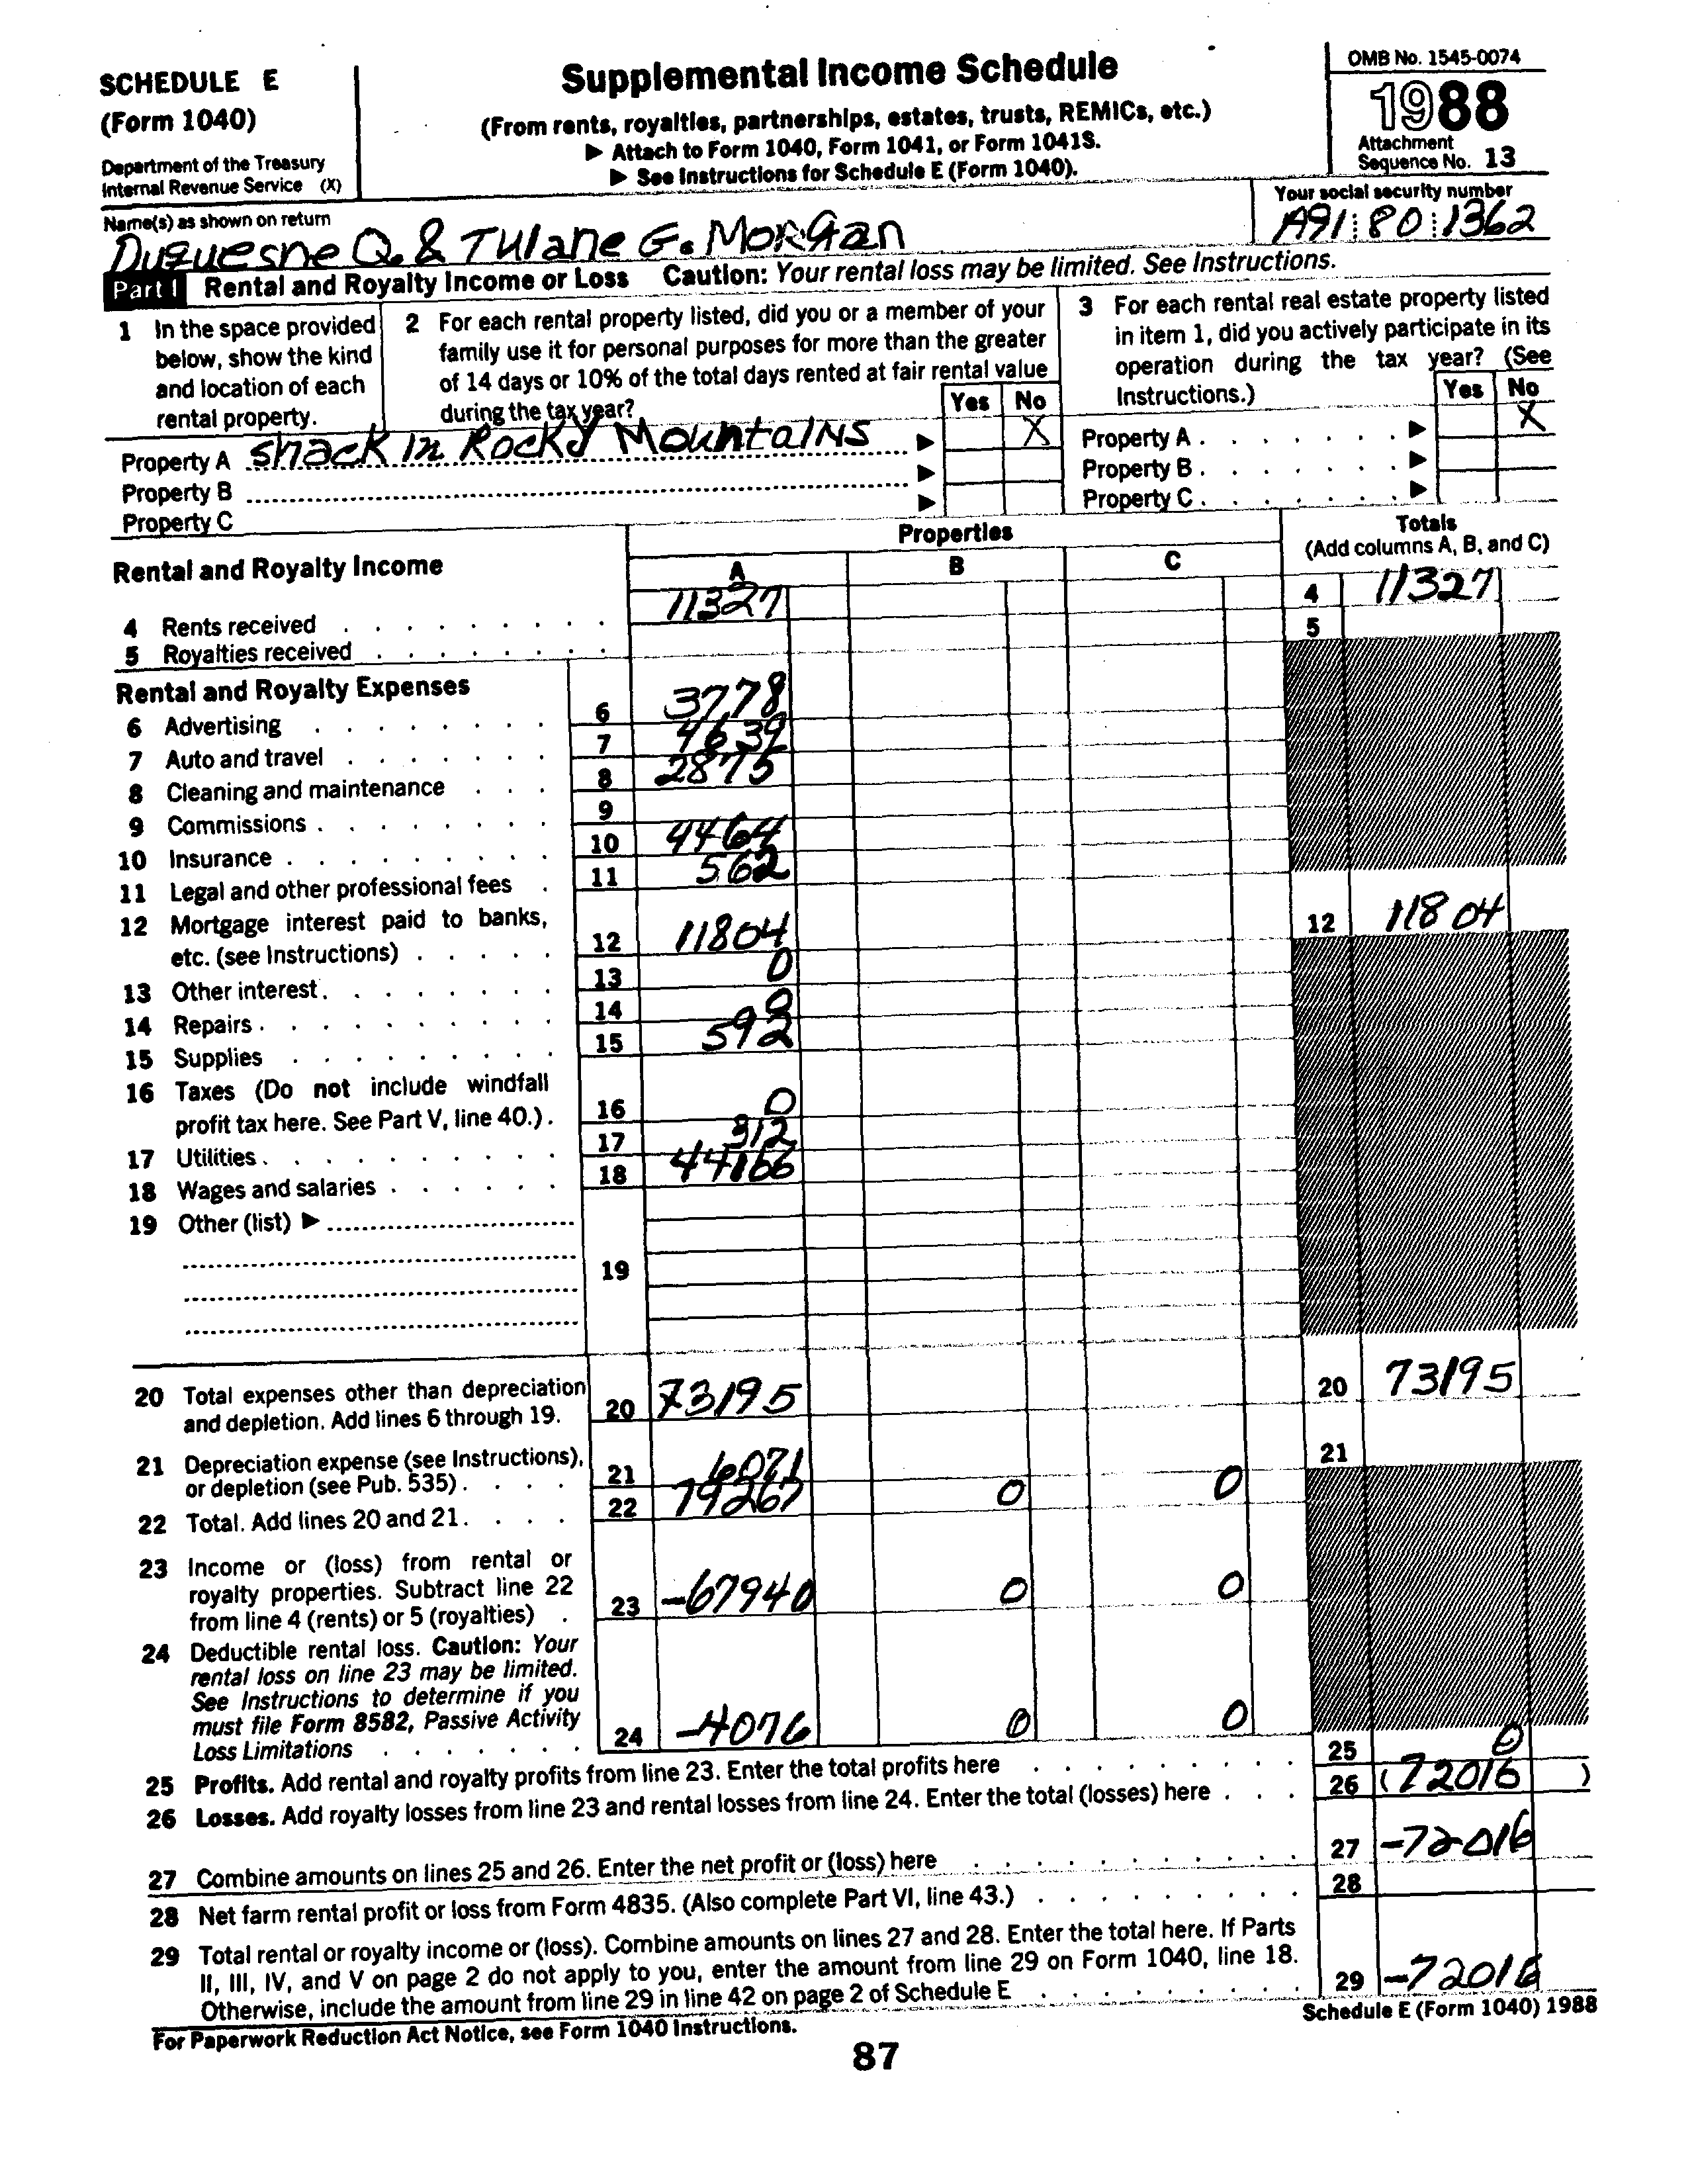 SCHEDULE E
(Form 1040)
Department of the Treasury
Internal Revenue Service (X)
Supplemental Income Schedule
(From rents, royalties, partnerships, estates, trusts, REMICs, etc.)
▶ Attach to Form 1040, Form 1041, or Form 1041S.
▶ See Instructions for Schedule E (Form 1040).
OMB No. 1545-0074
1988
Attachment
Sequence No. 13
Name(s) as shown on return
Duquesne Q. & Tulane G. Morgan
Your social security number
A91 80 1362
Part I Rental and Royalty Income or Loss Caution: Your rental loss may be limited. See Instructions.
1 In the space provided
below, show the kind
and location of each
rental property.
2 For each rental property listed, did you or a member of your
family use it for personal purposes for more than the greater
of 14 days or 10% of the total days rented at fair rental value
during the tax year?
Yes No
3 For each rental real estate property listed
in item 1, did you actively participate in its
operation during the tax year? (See
Instructions.)
Yes No
Property A Shack in Rocky Mountains ▶ X
Property B ▶
Property C ▶
Property A . . . . . . . ▶ X
Property B . . . . . . . ▶
Property C . . . . . . . ▶
Rental and Royalty Income
Properties
A B C
Totals
(Add columns A, B, and C)
4 Rents received 11327 4 11327
5 Royalties received 5
Rental and Royalty Expenses
6 Advertising 6 3778
7 Auto and travel 7 4639
8 Cleaning and maintenance 8 2875
9 Commissions 9
10 Insurance 10 4464
11 Legal and other professional fees 11 562
12 Mortgage interest paid to banks,
etc. (see Instructions) 12 11804 12 11804
13 Other interest 13 0
14 Repairs 14 0
15 Supplies 15 592
16 Taxes (Do not include windfall
profit tax here. See Part V, line 40.) 16 0
17 Utilities 17 312
18 Wages and salaries 18 44166
19 Other (list) ▶
19
20 Total expenses other than depreciation
and depletion. Add lines 6 through 19. 20 73195 20 73195
21 Depreciation expense (see Instructions),
or depletion (see Pub. 535) 21 6071 21
22 Total. Add lines 20 and 21 22 79267 0 0
23 Income or (loss) from rental or
royalty properties. Subtract line 22
from line 4 (rents) or 5 (royalties) 23 -67940 0 0
24 Deductible rental loss. Caution: Your
rental loss on line 23 may be limited.
See Instructions to determine if you
must file Form 8582, Passive Activity
Loss Limitations 24 -4076 0 0
25 Profits. Add rental and royalty profits from line 23. Enter the total profits here 25 0
26 Losses. Add royalty losses from line 23 and rental losses from line 24. Enter the total (losses) here 26 (72016)
27 Combine amounts on lines 25 and 26. Enter the net profit or (loss) here 27 -72016
28 Net farm rental profit or loss from Form 4835. (Also complete Part VI, line 43.) 28
29 Total rental or royalty income or (loss). Combine amounts on lines 27 and 28. Enter the total here. If Parts
II, III, IV, and V on page 2 do not apply to you, enter the amount from line 29 on Form 1040, line 18.
Otherwise, include the amount from line 29 in line 42 on page 2 of Schedule E 29 -72016
For Paperwork Reduction Act Notice, see Form 1040 Instructions.
Schedule E (Form 1040) 1988
87